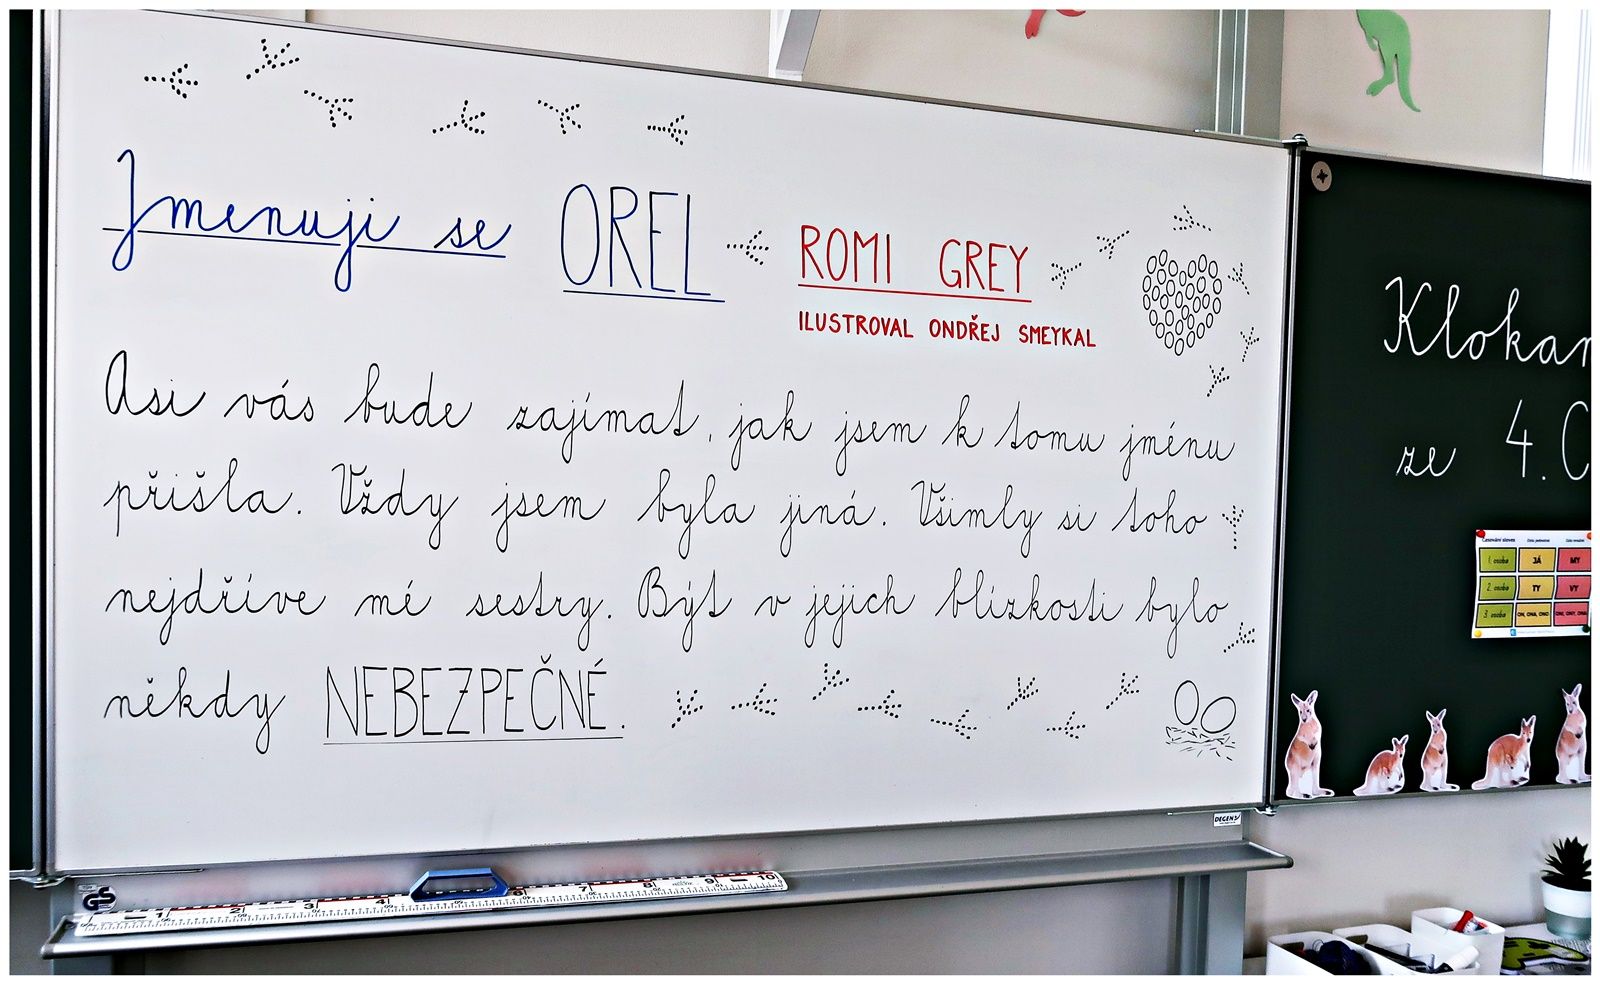 Jmenuji se OREL
ROMI GREY
ILUSTROVAL ONDŘEJ SMEYKAL
Asi vás bude zajímat, jak jsem k tomu jménu
přišla. Vždy jsem byla jiná. Všimly si toho
nejdříve mé sestry. Být v jejich blízkosti bylo
někdy NEBEZPEČNÉ.
Klokan
ze 4.C
Časování sloves
1. osoba JÁ MY
2. osoba TY VY
3. osoba ON, ONA, ONO ONI, ONY, ONA
DEGEN
1 2 3 4 6 7 8 9 10